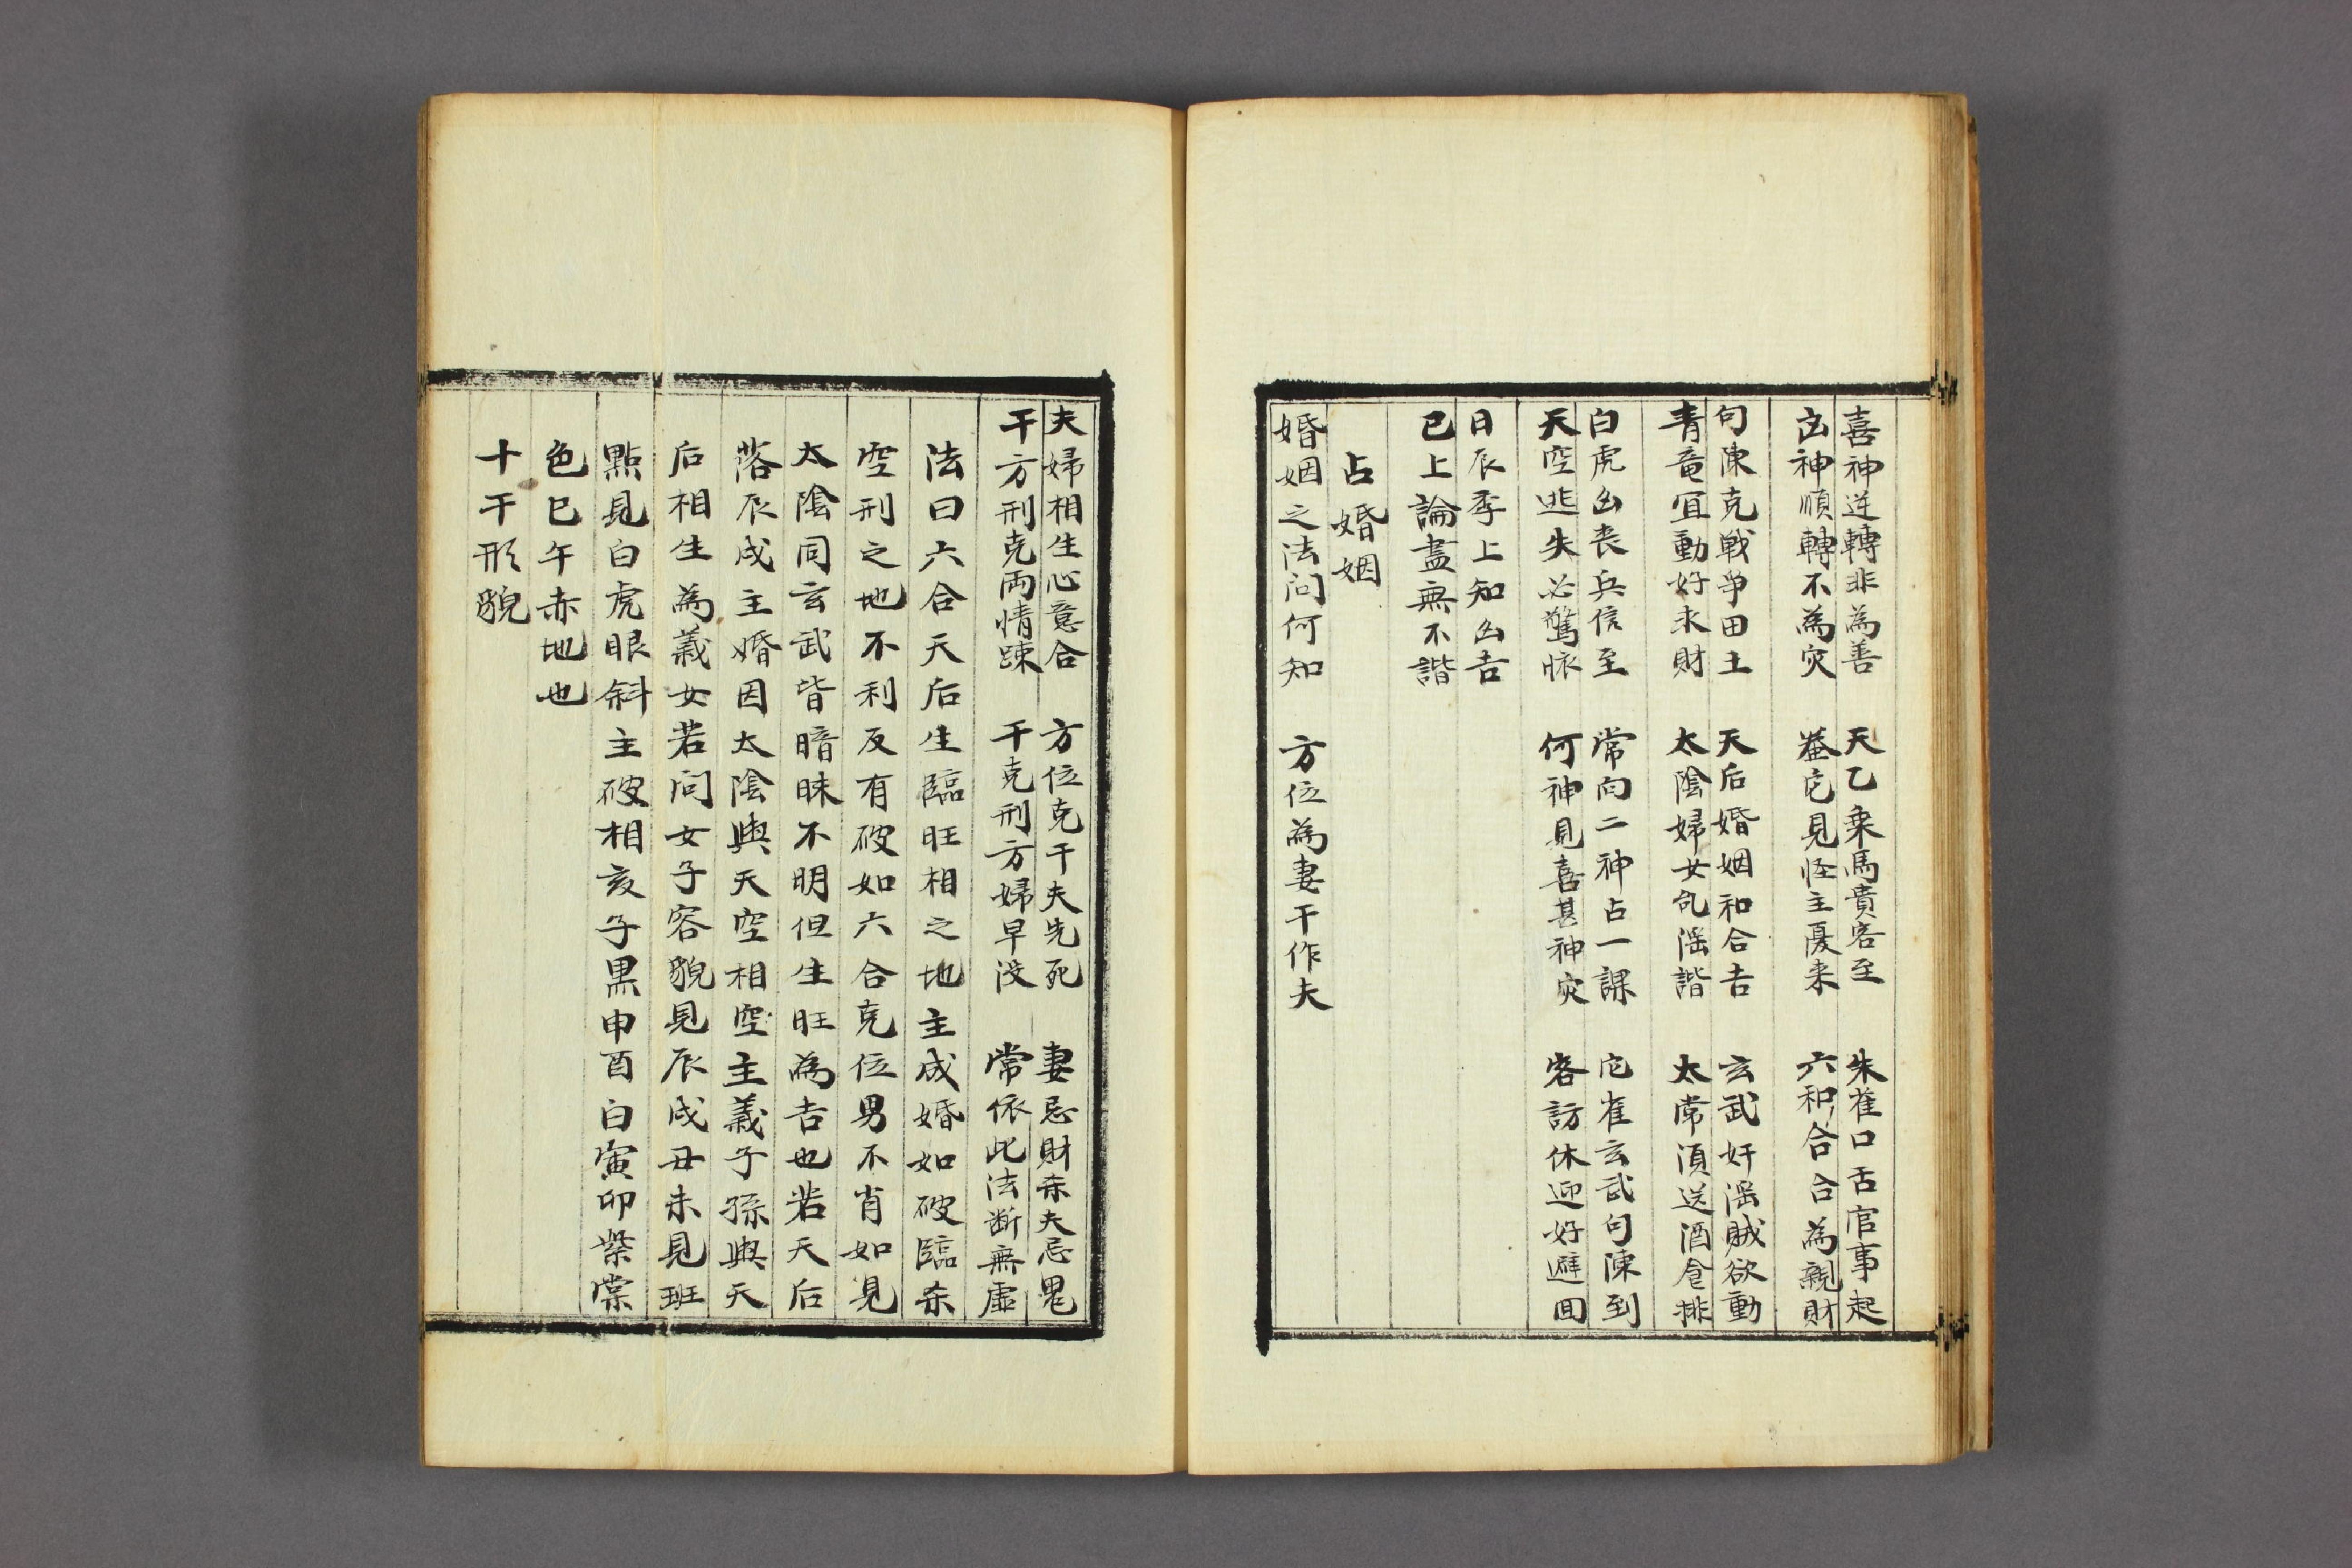 喜神逆轉非為善　天乙乗馬貴客至　朱雀口舌官事起
凶神順轉不為灾　螣它見怪主憂来　六和合合為親財
句陳克戰爭田土　天后婚姻和合吉　玄武奸滛賊欲動
青竜宜動好求財　太陰婦女乱滛諧　太常湏送酒食排
白虎凶丧兵信至　常向二神占一課　它雀玄武句陳到
天空逃失必驚脉　何神見喜甚神灾　客訪休迎好避回
日辰季上知凶吉
已上論盡無不諧
占婚姻
婚姻之法问何知　方位為妻干作夫
夫婦相生心意合　方位克干夫先死　妻忌財杀夫忌鬼
干方刑克両情踈　干克刑方婦早没　常依此法断無虛
法曰六合天后生臨旺相之地主成婚如破臨杀
空刑之地不利反有破如六合克位男不肖如見
太陰同玄武皆暗昧不明但生旺為吉也若天后
落辰戌主婚因太陰與天空相空主義子孫與天
后相生為義女若问女子容貌見辰戌丑未見班
點見白虎眼斜主破相亥子黒申酉白寅卯紫棠
色巳午赤地也
十干形貌